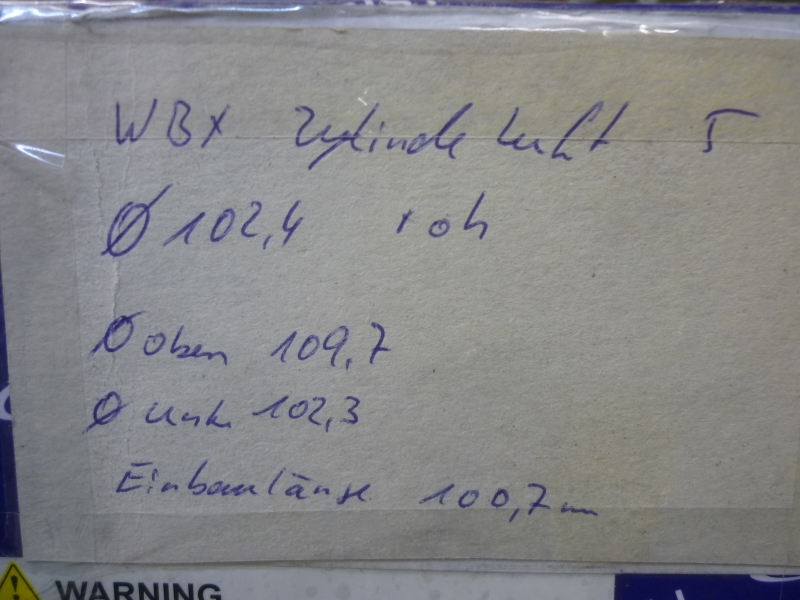 WBX Zylinder Luft
Ø 102,4 roh
Ø oben 109,7
Ø unten 102,3
Einbaulänge 100,7 mm
WARNING